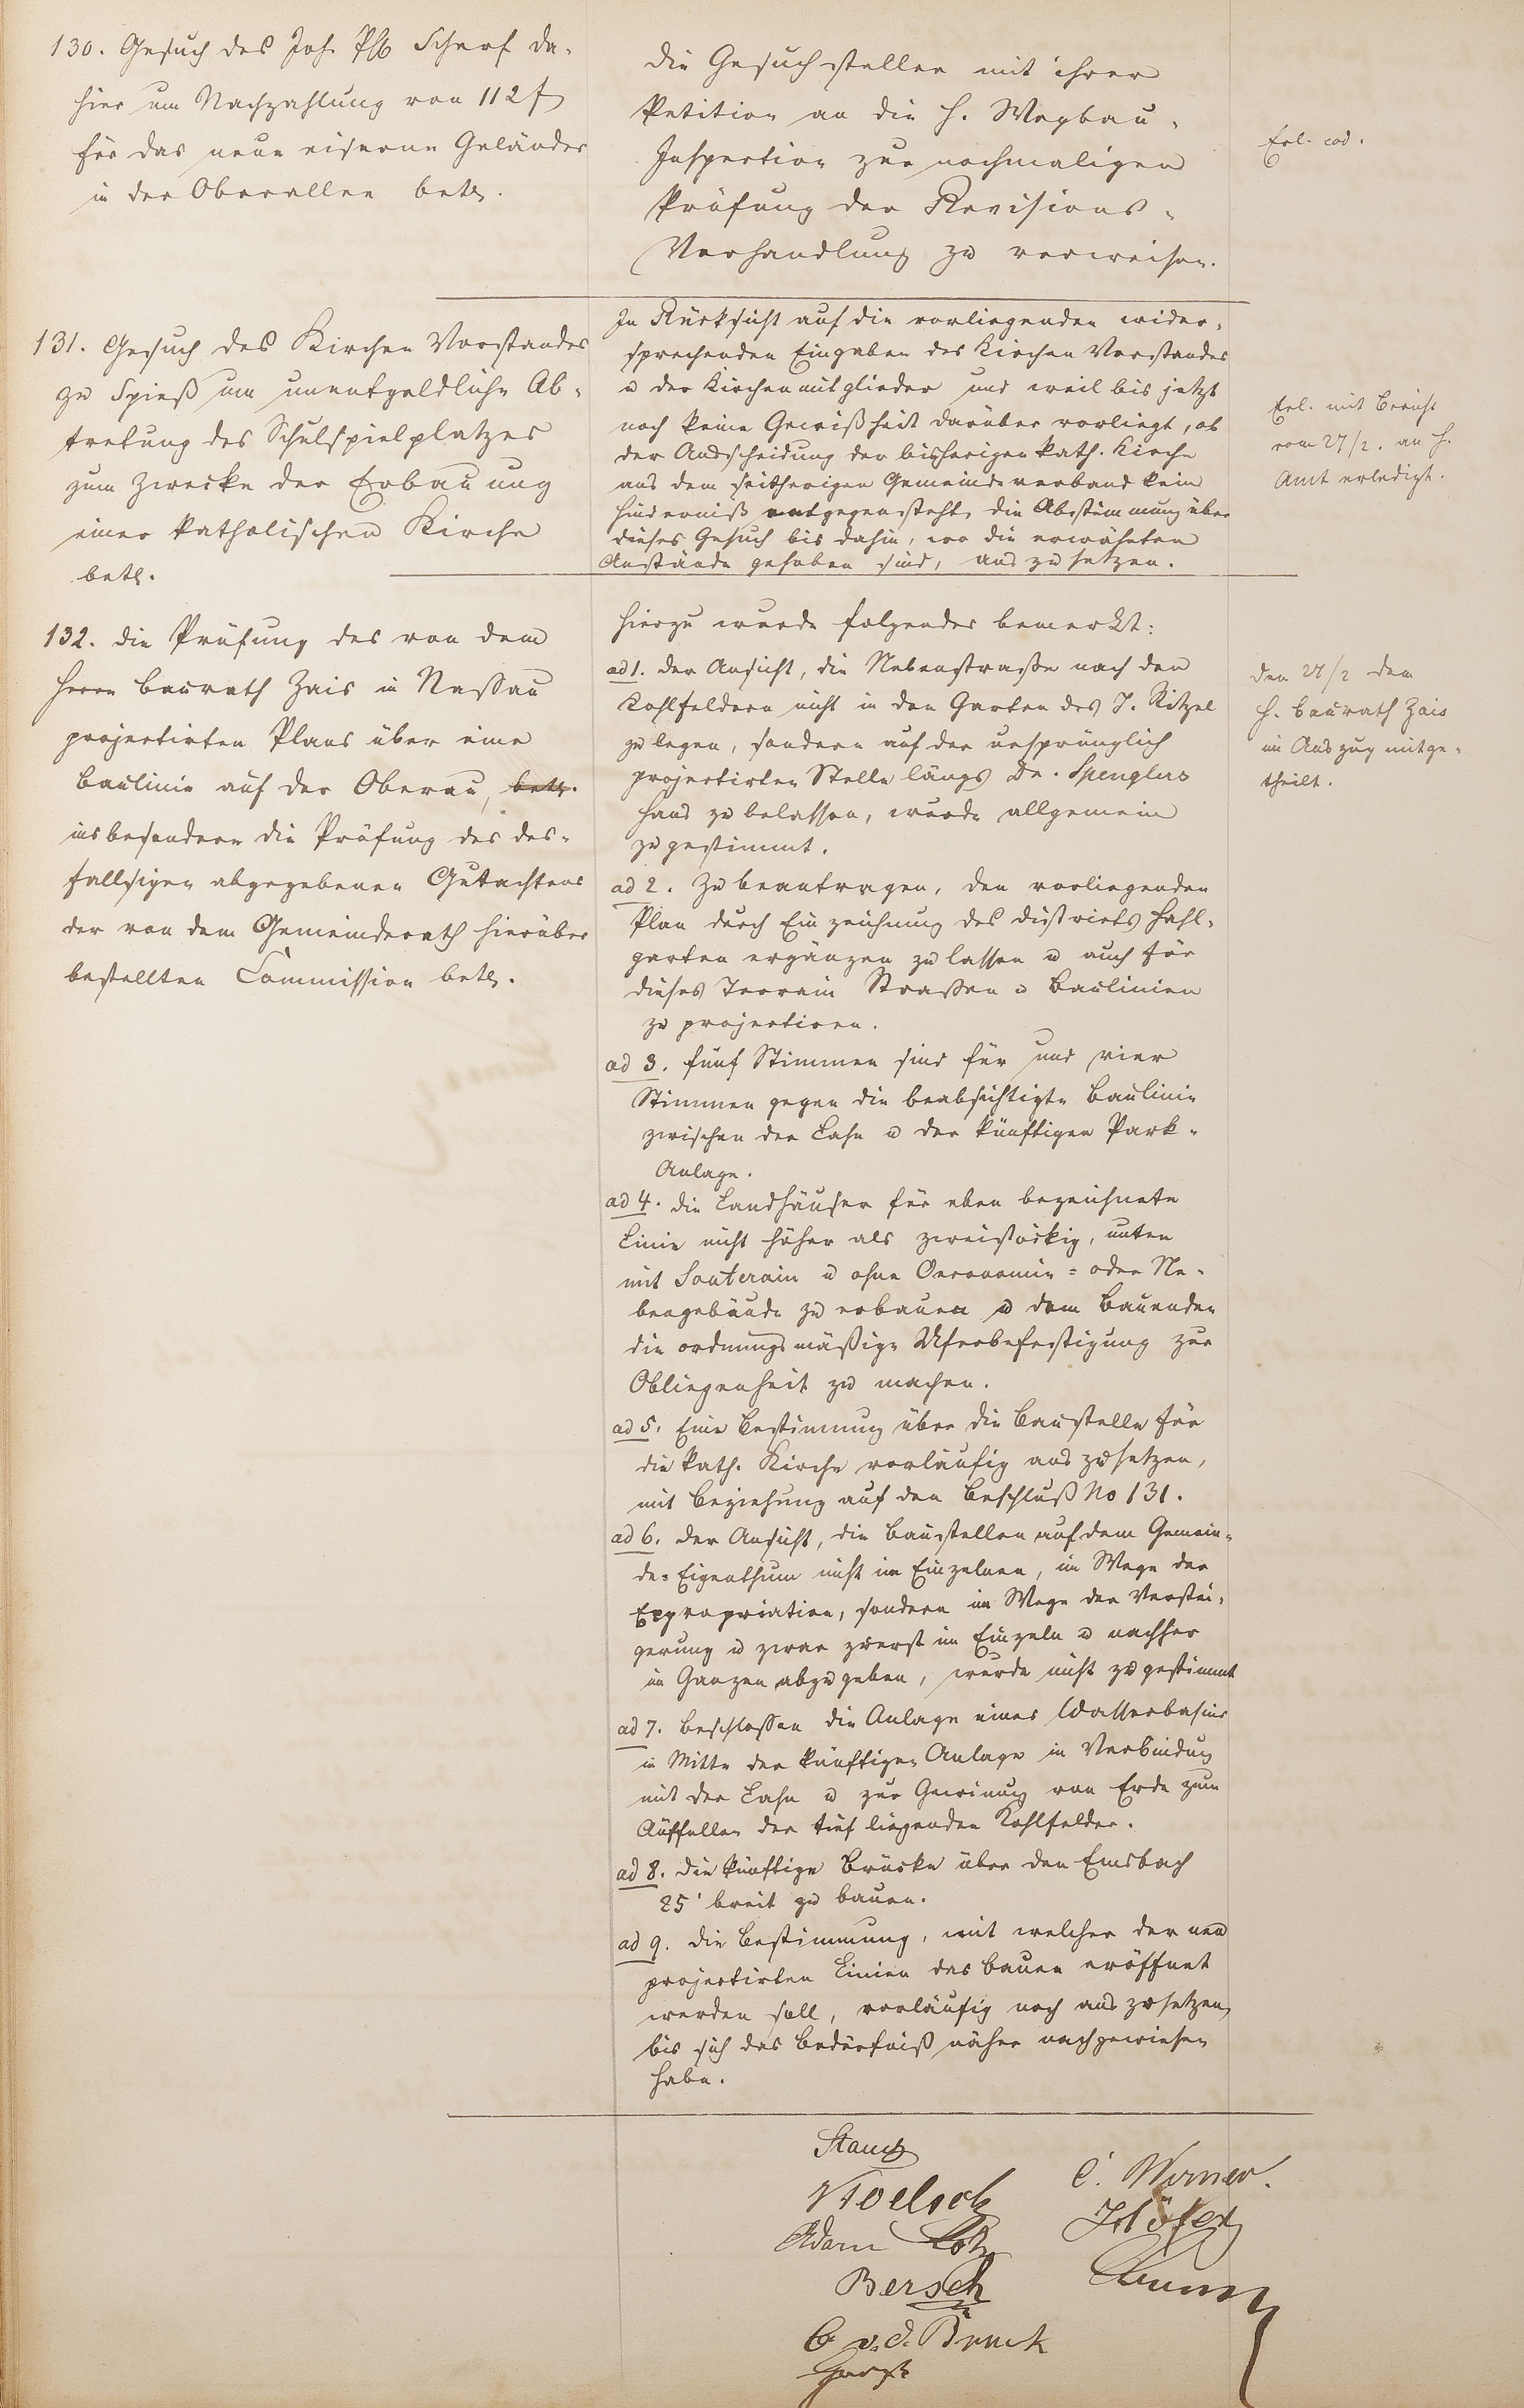 130. Gesuch des Joh. Scharf da-
hier um Nachzahlung von 112 f
für das neue eiserne Geländer
in der Oberallee betr.
die Gesuchsteller mit ihrer
Petition an die H. Wegbau-
Inspection zur nochmaligen
Prüfung der Revisions-
Verhandlung zu verweisen.
Erl. eod.
131. Gesuch des Kirchen Vorstandes
zu Spieß um unentgeldliche Ab-
tretung des Schulspielplatzes
zum Zwecke der Erbauung
einer katholischen Kirche
betr.
In Rücksicht auf die vorliegenden wider-
sprechenden Eingaben des Kirchen Vorstandes
u der Kirchenmitglieder und weil bis jetzt
noch keine Gewißheit darüber vorliegt, ob
der Ausscheidung der bisherigen kath. Kirche
aus dem seitherigen Gemeindeverband kein
Hinderniß entgegensteht, die Abstimmung über
dieses Gesuch bis dahin, wo die erwähnten
Anstände gehoben sind, aus zu setzen.
Erl. mit Bericht
vom 27/2. an H.
Amt erledigt.
132. die Prüfung des von dem
Herrn Baurath Zais in Nassau
projectirten Plans über eine
Baulinie auf der Oberau, betr.
insbesondere die Prüfung des des-
fallsigen abgegebenen Gutachtens
der von dem Gemeinderath hierüber
bestellten Commission betr.
Hierzu wurde folgendes bemerkt:
ad 1. der Ansicht, die Nebenstraße nach den
Kohlfeldern nicht in den Garten des J. Ritzel
zu legen, sondern auf der ursprünglich
projectirten Stelle längs Dr. Spenglers
Haus zu belassen, wurde allgemein
zugestimmt.
ad 2. Zu beantragen, den vorliegenden
Plan durch Einzeichnung des Districts Hahl-
garten ergänzen zu lassen u auch für
dieses Terrain Straßen u Baulinien
zu projectiren.
ad 3. fünf Stimmen sind für und vier
Stimmen gegen die beabsichtigte Baulinie
zwischen der Lahn u der künftigen Park-
Anlage.
ad 4. die Landhäuser für eben bezeichnete
Linie nicht höher als zweistöckig, unten
mit Souterain u ohne Oeconomie- oder Ne-
bengebäude zu erbauen u dem Bauenden
die ordnungsmäßige Uferbefestigung zur
Obliegenheit zu machen.
ad 5. Eine Bestimmung über die Baustelle für
die kath. Kirche vorläufig aus zu setzen,
mit Beziehung auf den Beschluß No 131.
ad 6. der Ansicht, die Baustellen auf dem Gemein-
de-Eigenthum nicht im Einzelnen, im Wege der
Expropriation, sondern im Wege der Verstei-
gerung u zwar zuerst im Einzeln u nachher
im Ganzen abzugeben, wurde nicht zugestimmt
ad 7. Beschlossen die Anlage eines Wasserbasins
in Mitte der künftigen Anlage in Verbindung
mit der Lahn u zur Gewinnug von Erde zum
Auffüllen der tief liegenden Kohlfelder.
ad 8. die künftige Brücke über den Emsbach
25' breit zu bauen.
ad 9. die Bestimmung, mit welcher der neu
projectirten Linien das Bauen eröffnet
werden soll, vorläufig noch aus zu setzen,
bis sich das Bedürfniß näher nachgewiesen
habe.
den 27/2 dem
H. Baurath Zais
im Auszug mitge-
theilt.
C. Werner.
Adam
Höfer
Bersch
C. v. d. Bruck